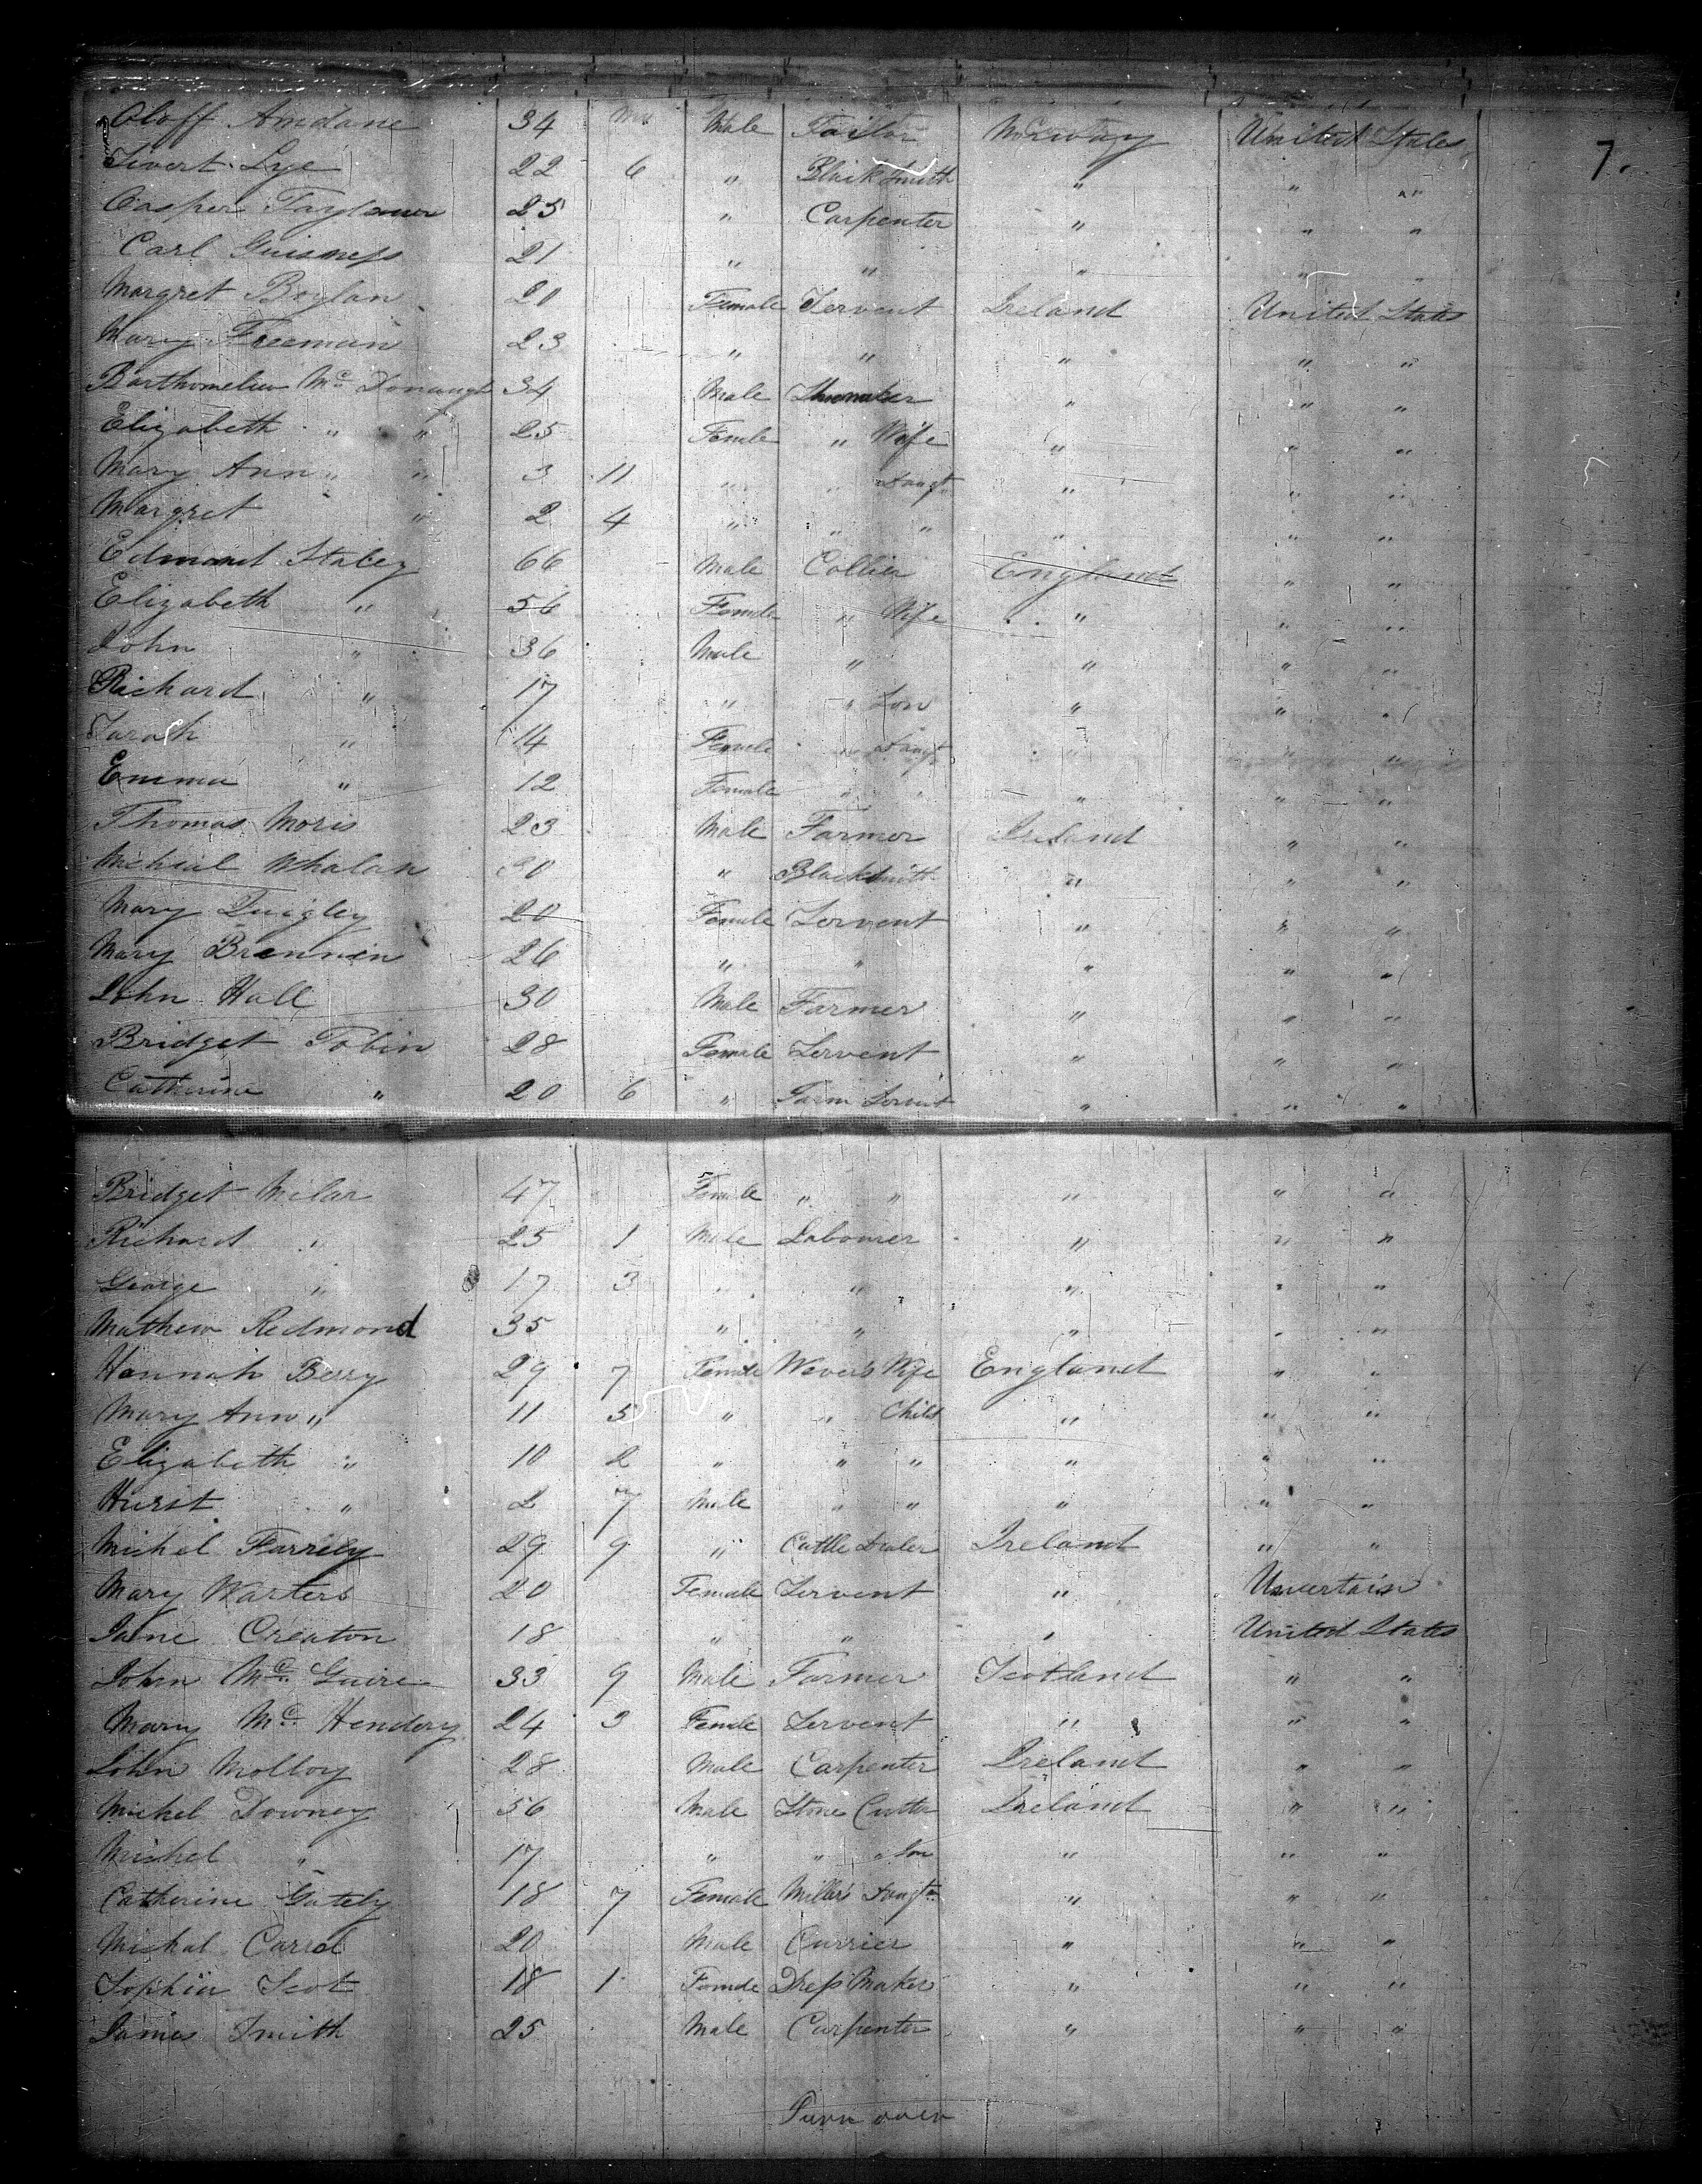 Oloff Amdane 34 Male Tailor Norway United States
7.
Sivert Lye 22 6 " Blacksmith " " "
Casper 25 " Carpenter " " "
Carl 21 " " " " "
Margret Boylan 20 Female Servent Ireland United States
Mary Freeman 23 " " " " "
Barthomeliw Mc Donaugh 34 Male Shomaker " " "
Elizabeth " " 25 Femle " Wife " " "
Mary Ann " " 3 11 " " Daugt " " "
Margret " 2 4 " " " " " "
Edmond Staley 66 Male Collier England " "
Elizabeth " 56 Femle " Wife " " "
John " 36 Male " " " "
Richard " 17 " " Son " " "
Sarah " 14 Female " Daugt " " "
Emma " 12 Female " " " " "
Thomas Moris 23 Male Farmer Ireland " "
Micheal Whalan " Blacksmith " " "
Mary Quigley 20 Female Servent " " "
Mary Brennen 26 " " " " "
John Hall 30 Male Farmer " " "
Bridget Tobin 28 Female Servent " " "
Catherine " 20 6 " Farm Servent " " "
Bridget Milar 47 Female " " " " "
Richard " 25 1 Male Labourer " " "
George " 17 3 " " " " "
Mathew Redmond 35 " " " " "
Hannah Berry 29 7 Female Wevers Wife England " "
Mary Ann " 11 5 " " Child " " "
Elizabeth " 10 2 " " " " " "
Hurst " 2 7 Male " " " " "
Michel Farrely 29 9 " Cattle Dealer Ireland " "
Mary Warters 20 Female Servent " Uncertain
Jane Creaton 18 " " " United States
John Mc Guire 33 9 Male Farmer Scotland " "
Mary Mc Hendery 24 3 Femle Servent " " "
John Molloy 28 Male Carpenter Ireland " "
Michel Downey 56 Male Stone Cutter Ireland " "
Michel " 17 " " Son " " "
Catherine Gately 18 7 Female Millers Daugtr " " "
Michal Carrol 20 Male Currier " " "
Sophia Scot 18 1 Femle Dress Maker " " "
James Smith 25 Male Carpenter " " "
Turn over